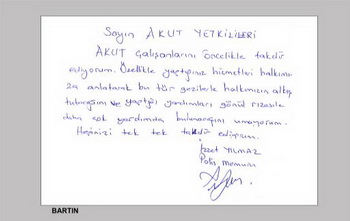 Sayın AKUT YETKİLİLERİ
AKUT Çalışanlarını öncelikle takdir
ediyorum. Özellikle yaptığınız hizmetleri halkımı
za anlatarak bu tür gezilerle halkımızın alkış
tutacağını ve yaptığı yardımları gönül rızasıle
daha çok yardımda bulunacağını umuyorum.
Hepinizi tek tek takdir ediyorum.
İzzet YILMAZ
Polis Memuru
BARTIN